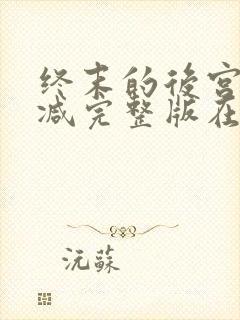 终末的後宫
减完整版在
沅蘇